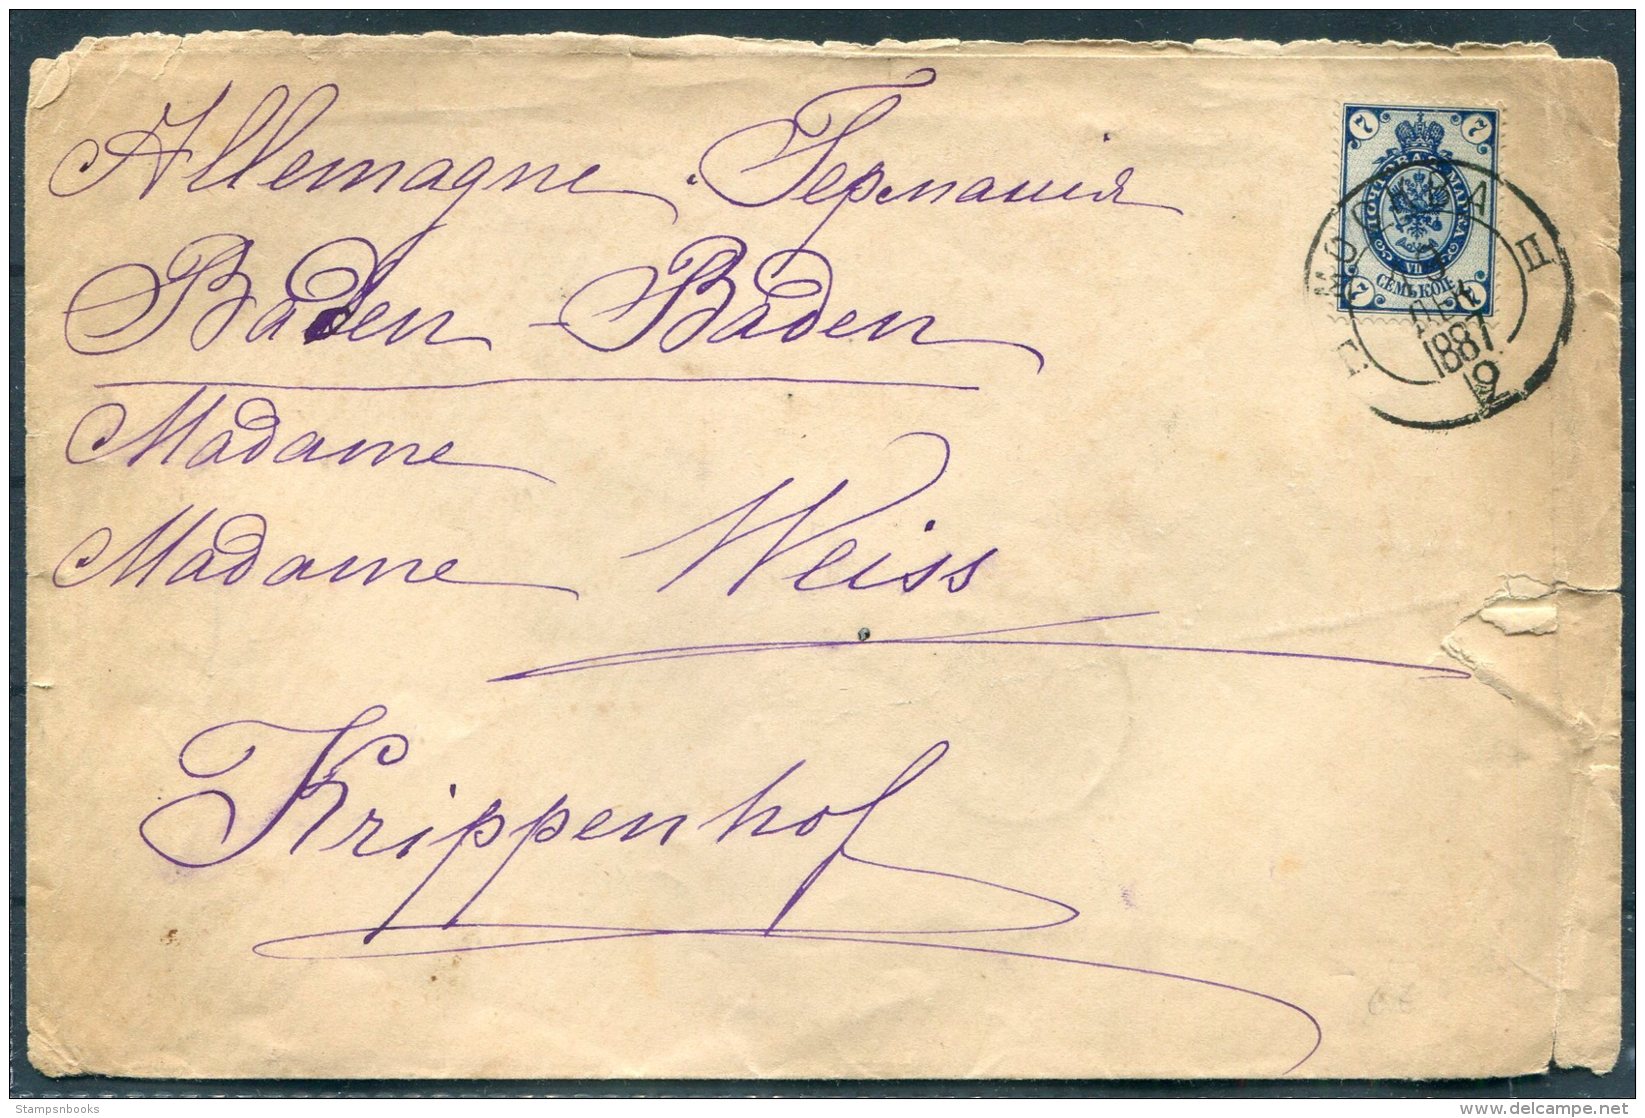 Allemagne. Германія
Baden-Baden
Madame
Madame Weiss
Krippenhof
7 7
ПОЧТОВАЯ МАРКА
VII
СЕМЬ КОП.
7 7
МОСКВА
ДЕК
1887
Stampsnbooks
delcampe.net